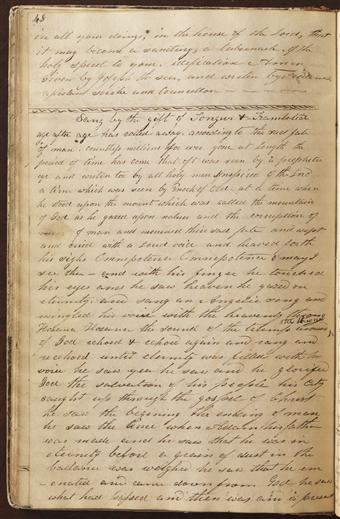 48
in all your doings, in the house of the Lord, that
it may become a sanctuary a tabernacle of the
holy spirit to your edification Amen
Given by Joseph the seer, and written by
apointed scribe and Councellor
Sang by the gift of Tongues & Translated
age after age has rolled away, according to the sad fate
of man. countless millions for ever gone at length the
period of time has come that oft was seen by a prophetic
eye and written to by all holy men inspired of the Lord
a time which was seen by Enoch of Old. at a time when
he stood upon the mount which was called the mountain
of God as he gazed upon nature and the corruption of
of man and mourned their sad fate and wept
and cried with a loud voice and heaved forth
his sighs Omnipotence Omnipotence O may I
see the — and with his finger he touched
his eyes and he saw heaven he gazed on
eternity and sang an Angelic song and
mingled his voice with the heavenly throng
Hosana Hosanna the sound of the trump around
the throne
of God echoed & echoed again and rang and
reechoed until eternity was filled with his
voice he saw yea he saw and he glorified
God the salvation of his people his City
caught up through the gospel of Christ
he saw the begining the ending of man
he saw the time when Adam his father
was made and he saw that he was in
eternity before a grain of dust in the
ballance was weighed he saw that he em
enated and came down from God he saw
what had passed and then was and is present